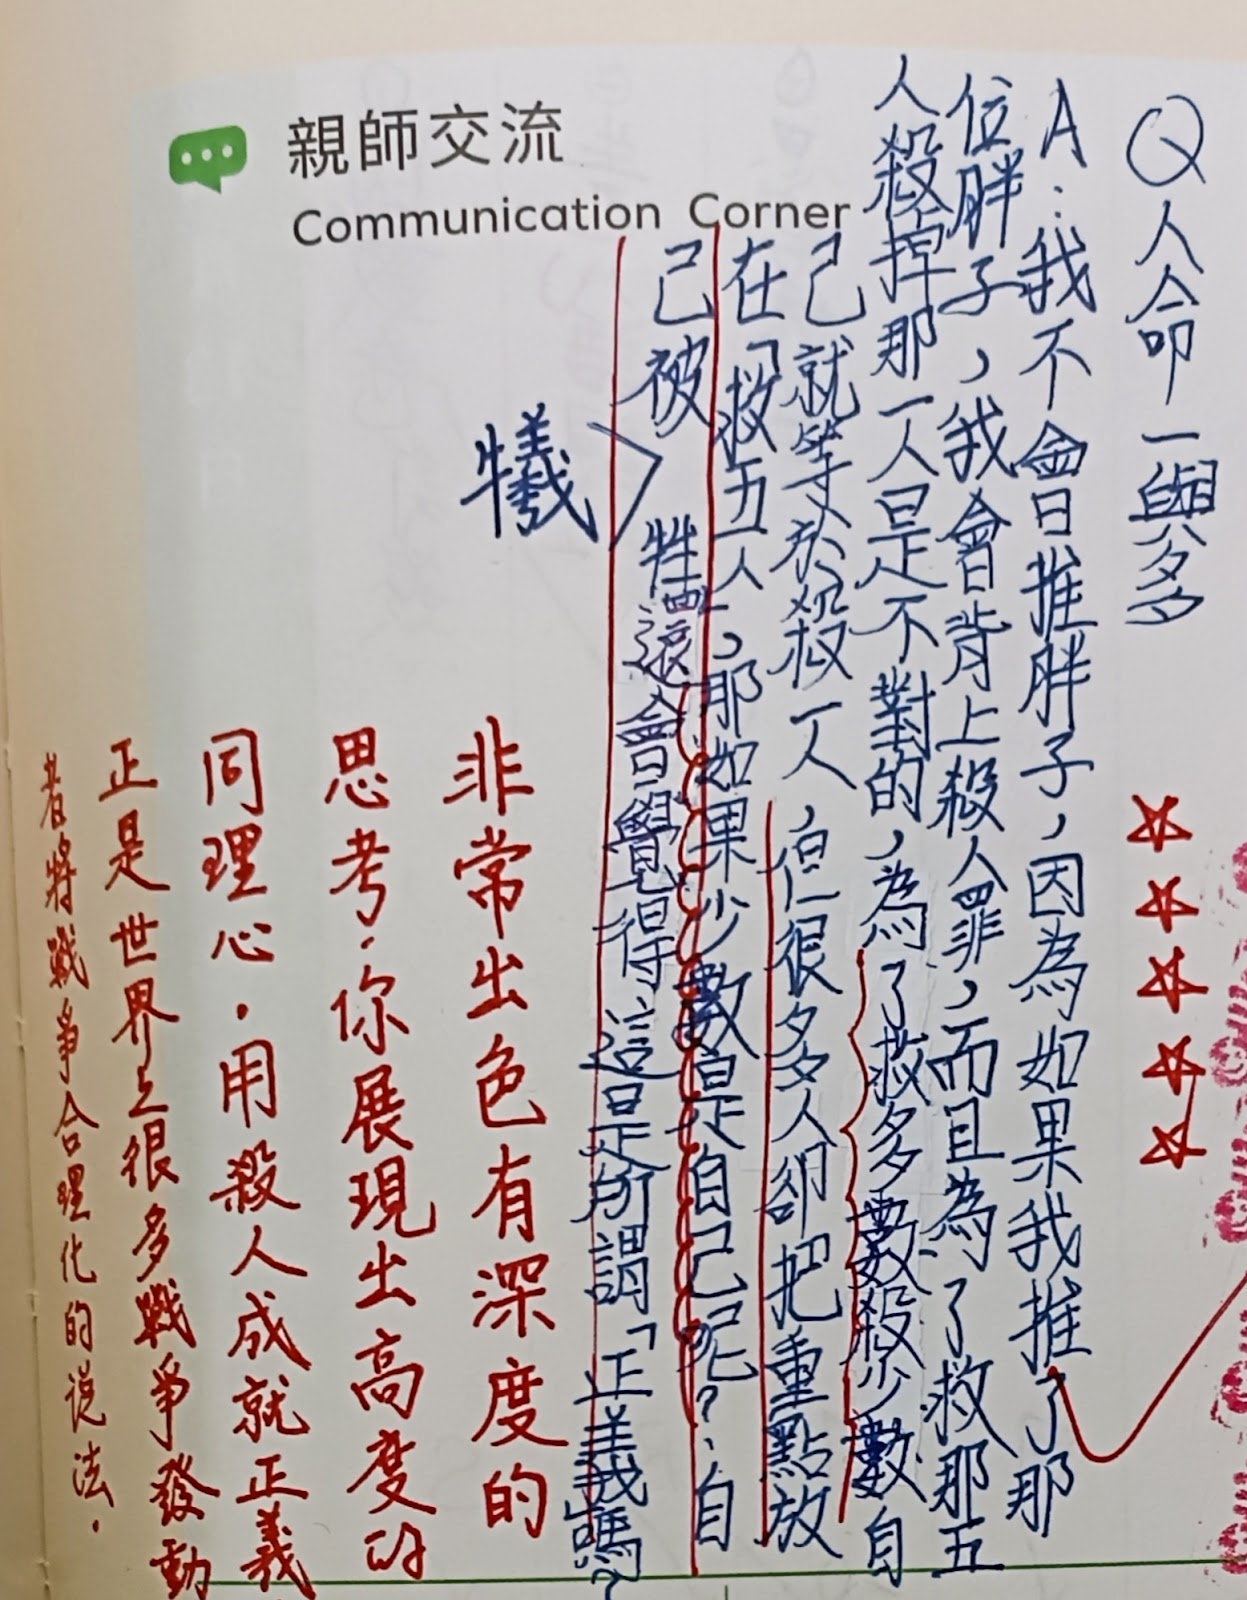 親師交流
Communication Corner
Q人命一與多
A：我不會推胖子，因為如果我推了那
位胖子，我會背上殺人罪，而且為了救那五
人殺掉那一人是不對的，為了救多數殺少數自
己就等於殺人，但很多人卻把重點放
在「救五人，那如果少數是自己呢？自
己被牲還會覺得這是所謂「正義嗎？
犧
非常出色有深度的
思考．你展現出高度的
同理心．用殺人成就正義
正是世界上很多戰爭發動
者將戰爭合理化的說法．